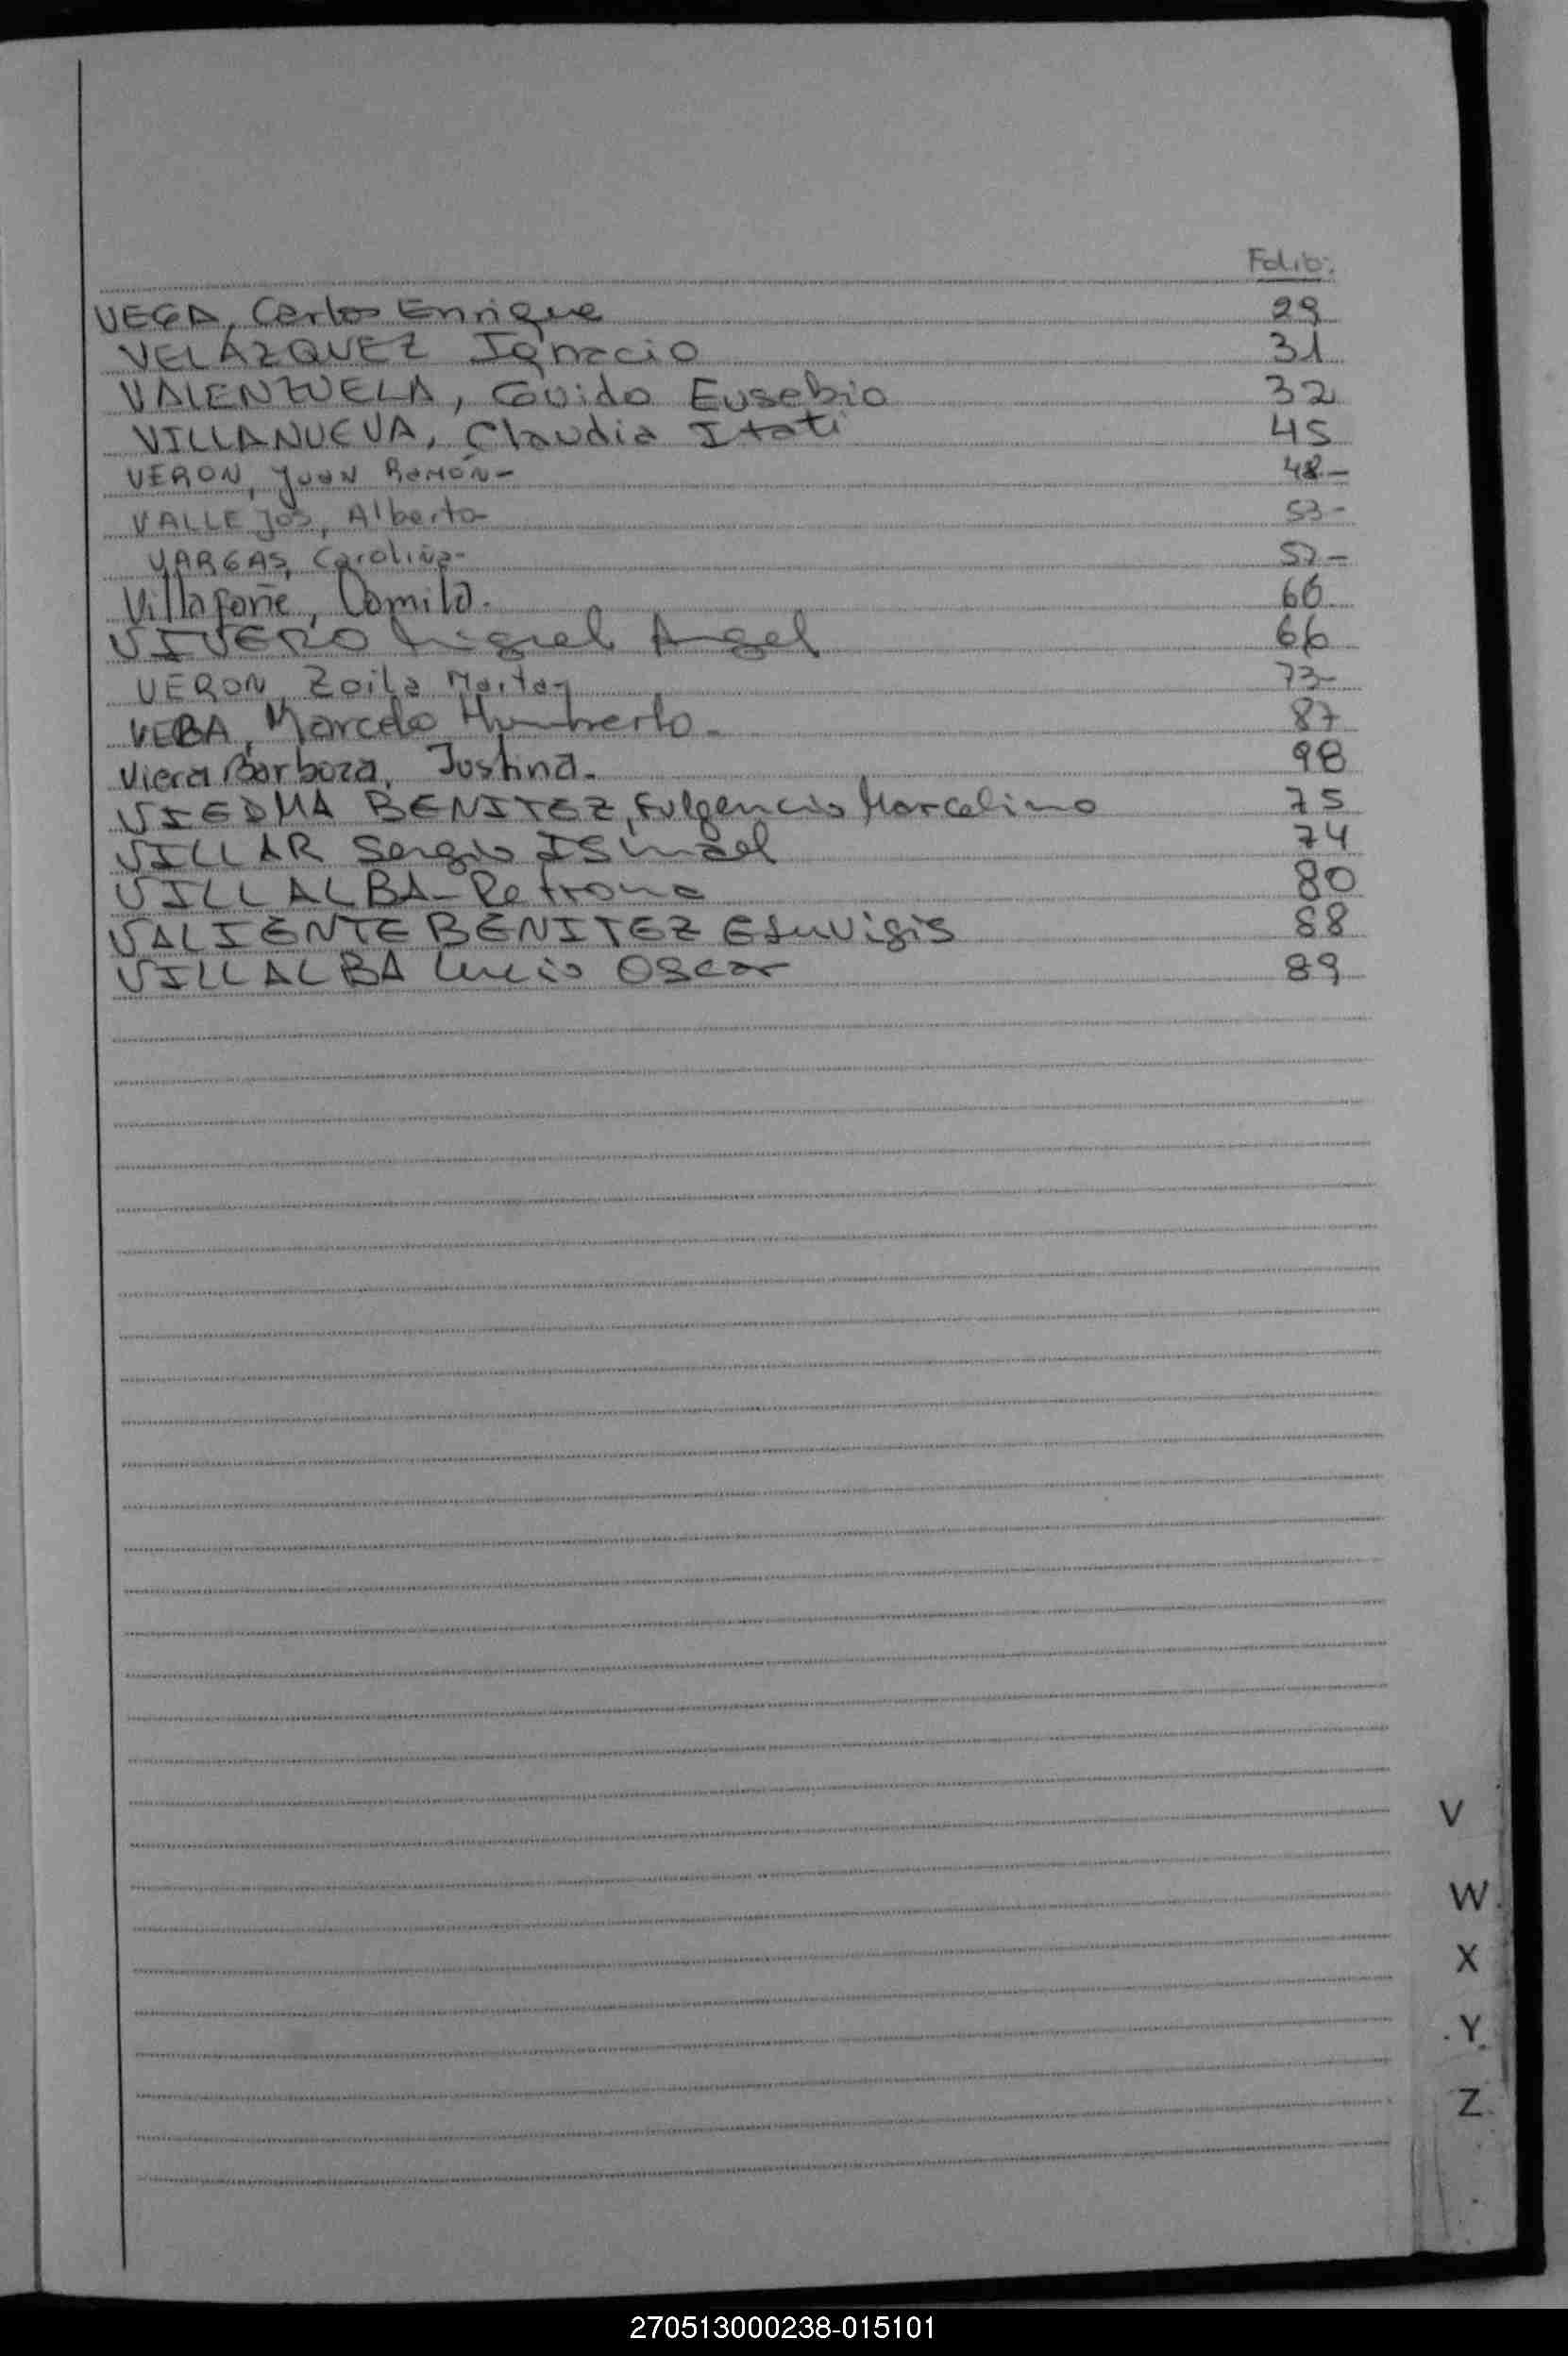 Folio:
VEGA, Carlos Enrique 29
VELAZQUEZ Ignacio 31
VALENZUELA, Guido Eusebio 32
VILLANUEVA, Claudia Itati 45
VERON, Juan Ramón- 48-
VALLEJOS, Alberto- 53-
VARGAS, Carolina- 57-
Villafañe, Camila. 60
VIVERO Miguel Angel 66
VERON, Zoila Marta- 73-
VERA, Marcelo Humberto- 87
Viera Barboza, Justina- 98
VIEDMA BENITEZ, Fulgencio Marcelino 75
VILLAR Sergio ISmael 74
VILLALBA- Petrona 80
VALIENTE BENITEZ Eduvigis 88
VILLALBA Lucio OScar 89
V
W
X
Y
Z
270513000238-015101